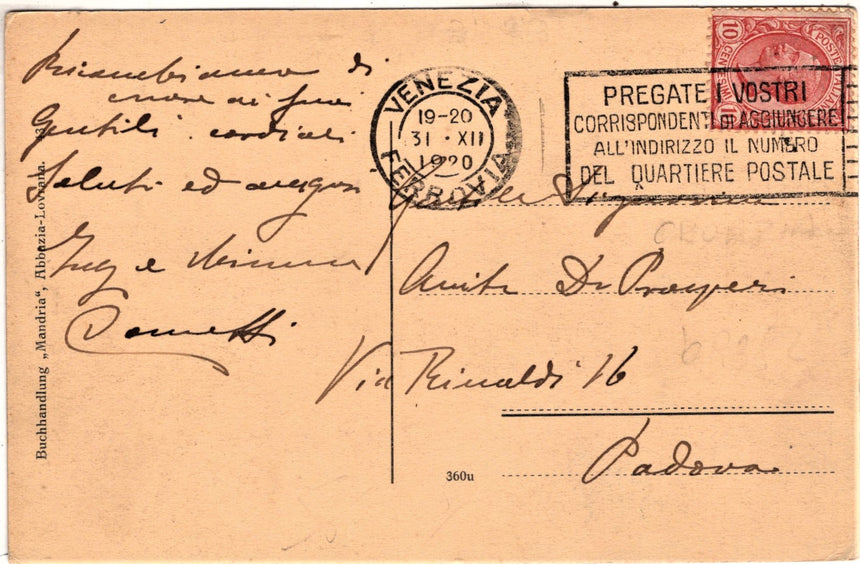 Ricambiamo di
cuore ai suoi
Gentili cordiali
Saluti ed auguri
e
Buchhandlung „Mandria“, Abbazia-Lovrana.
VENEZIA
19-20
31 · XII
1920
FERROVIA
10
POSTE ITALIANE
PREGATE I VOSTRI
CORRISPONDENTI DI AGGIUNGERE
ALL'INDIRIZZO IL NUMERO
DEL QUARTIERE POSTALE
Signorina
Anita De Prosperi
Via Rinaldi 16
Padova
360u